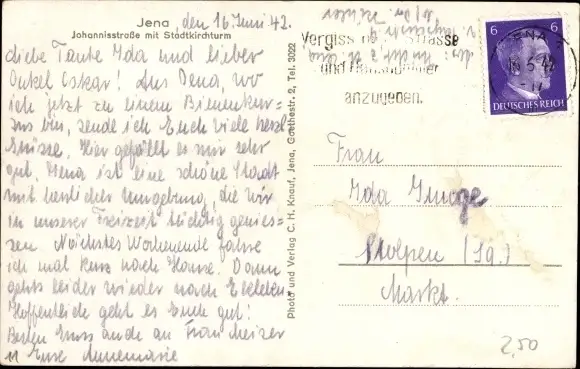 Jena, den 16. Juni 42.
Johannisstraße mit Stadtkirchturm
Liebe Tante Ida und lieber
Onkel Oskar! Aus Jena, wo
ich jetzt zu einem Bienenkur=
sus bin, sende ich Euch viele herzl.
Grüsse. Hier gefällt es mir sehr
gut. Jena ist eine schöne Stadt
mit herrlicher Umgebung, die wir
in unserer Freizeit tüchtig genies=
sen. Nächstes Wochenende fahre
ich mal kurz nach Hause. Dann
gehts leider wieder nach
Hoffentlich geht es Euch gut!
Besten Gruss auch an Frau
Eure Annemarie
Photo und Verlag C. H. Knauf, Jena, Goethestr. 2, Tel. 3022
Vergiss nicht Strasse
und Hausnummer
anzugeben.
JENA
6 6
DEUTSCHES REICH
Frau
Ida
Stolpen (Sa.)
Markt.
2,50